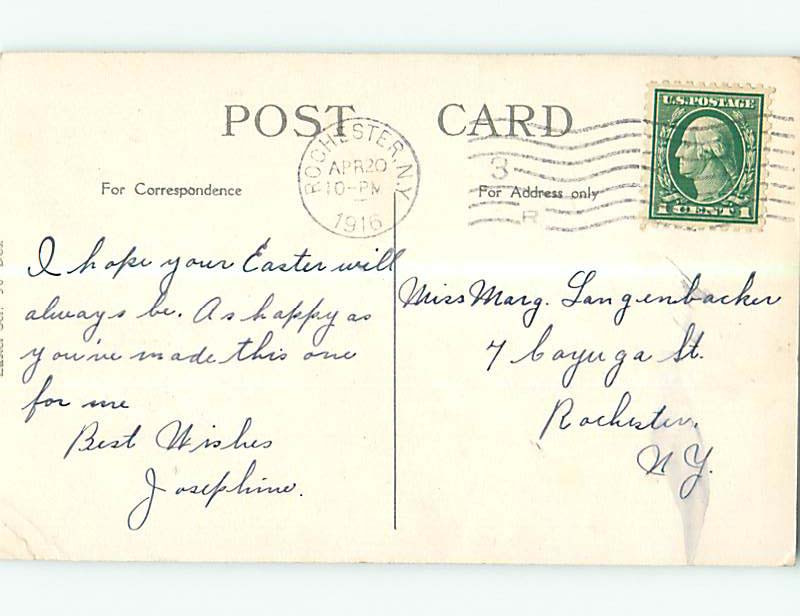 POST CARD
ROCHESTER, N.Y.
APR 20
10-PM
1916
3
R
U.S. POSTAGE
1 CENT 1
For Correspondence
For Address only
I hope your Easter will
always be. As happy as
you've made this one
for me
Best Wishes
Josephine.
Miss Marg. Langenbacker
7 Cayuga St.
Rochester,
N Y.